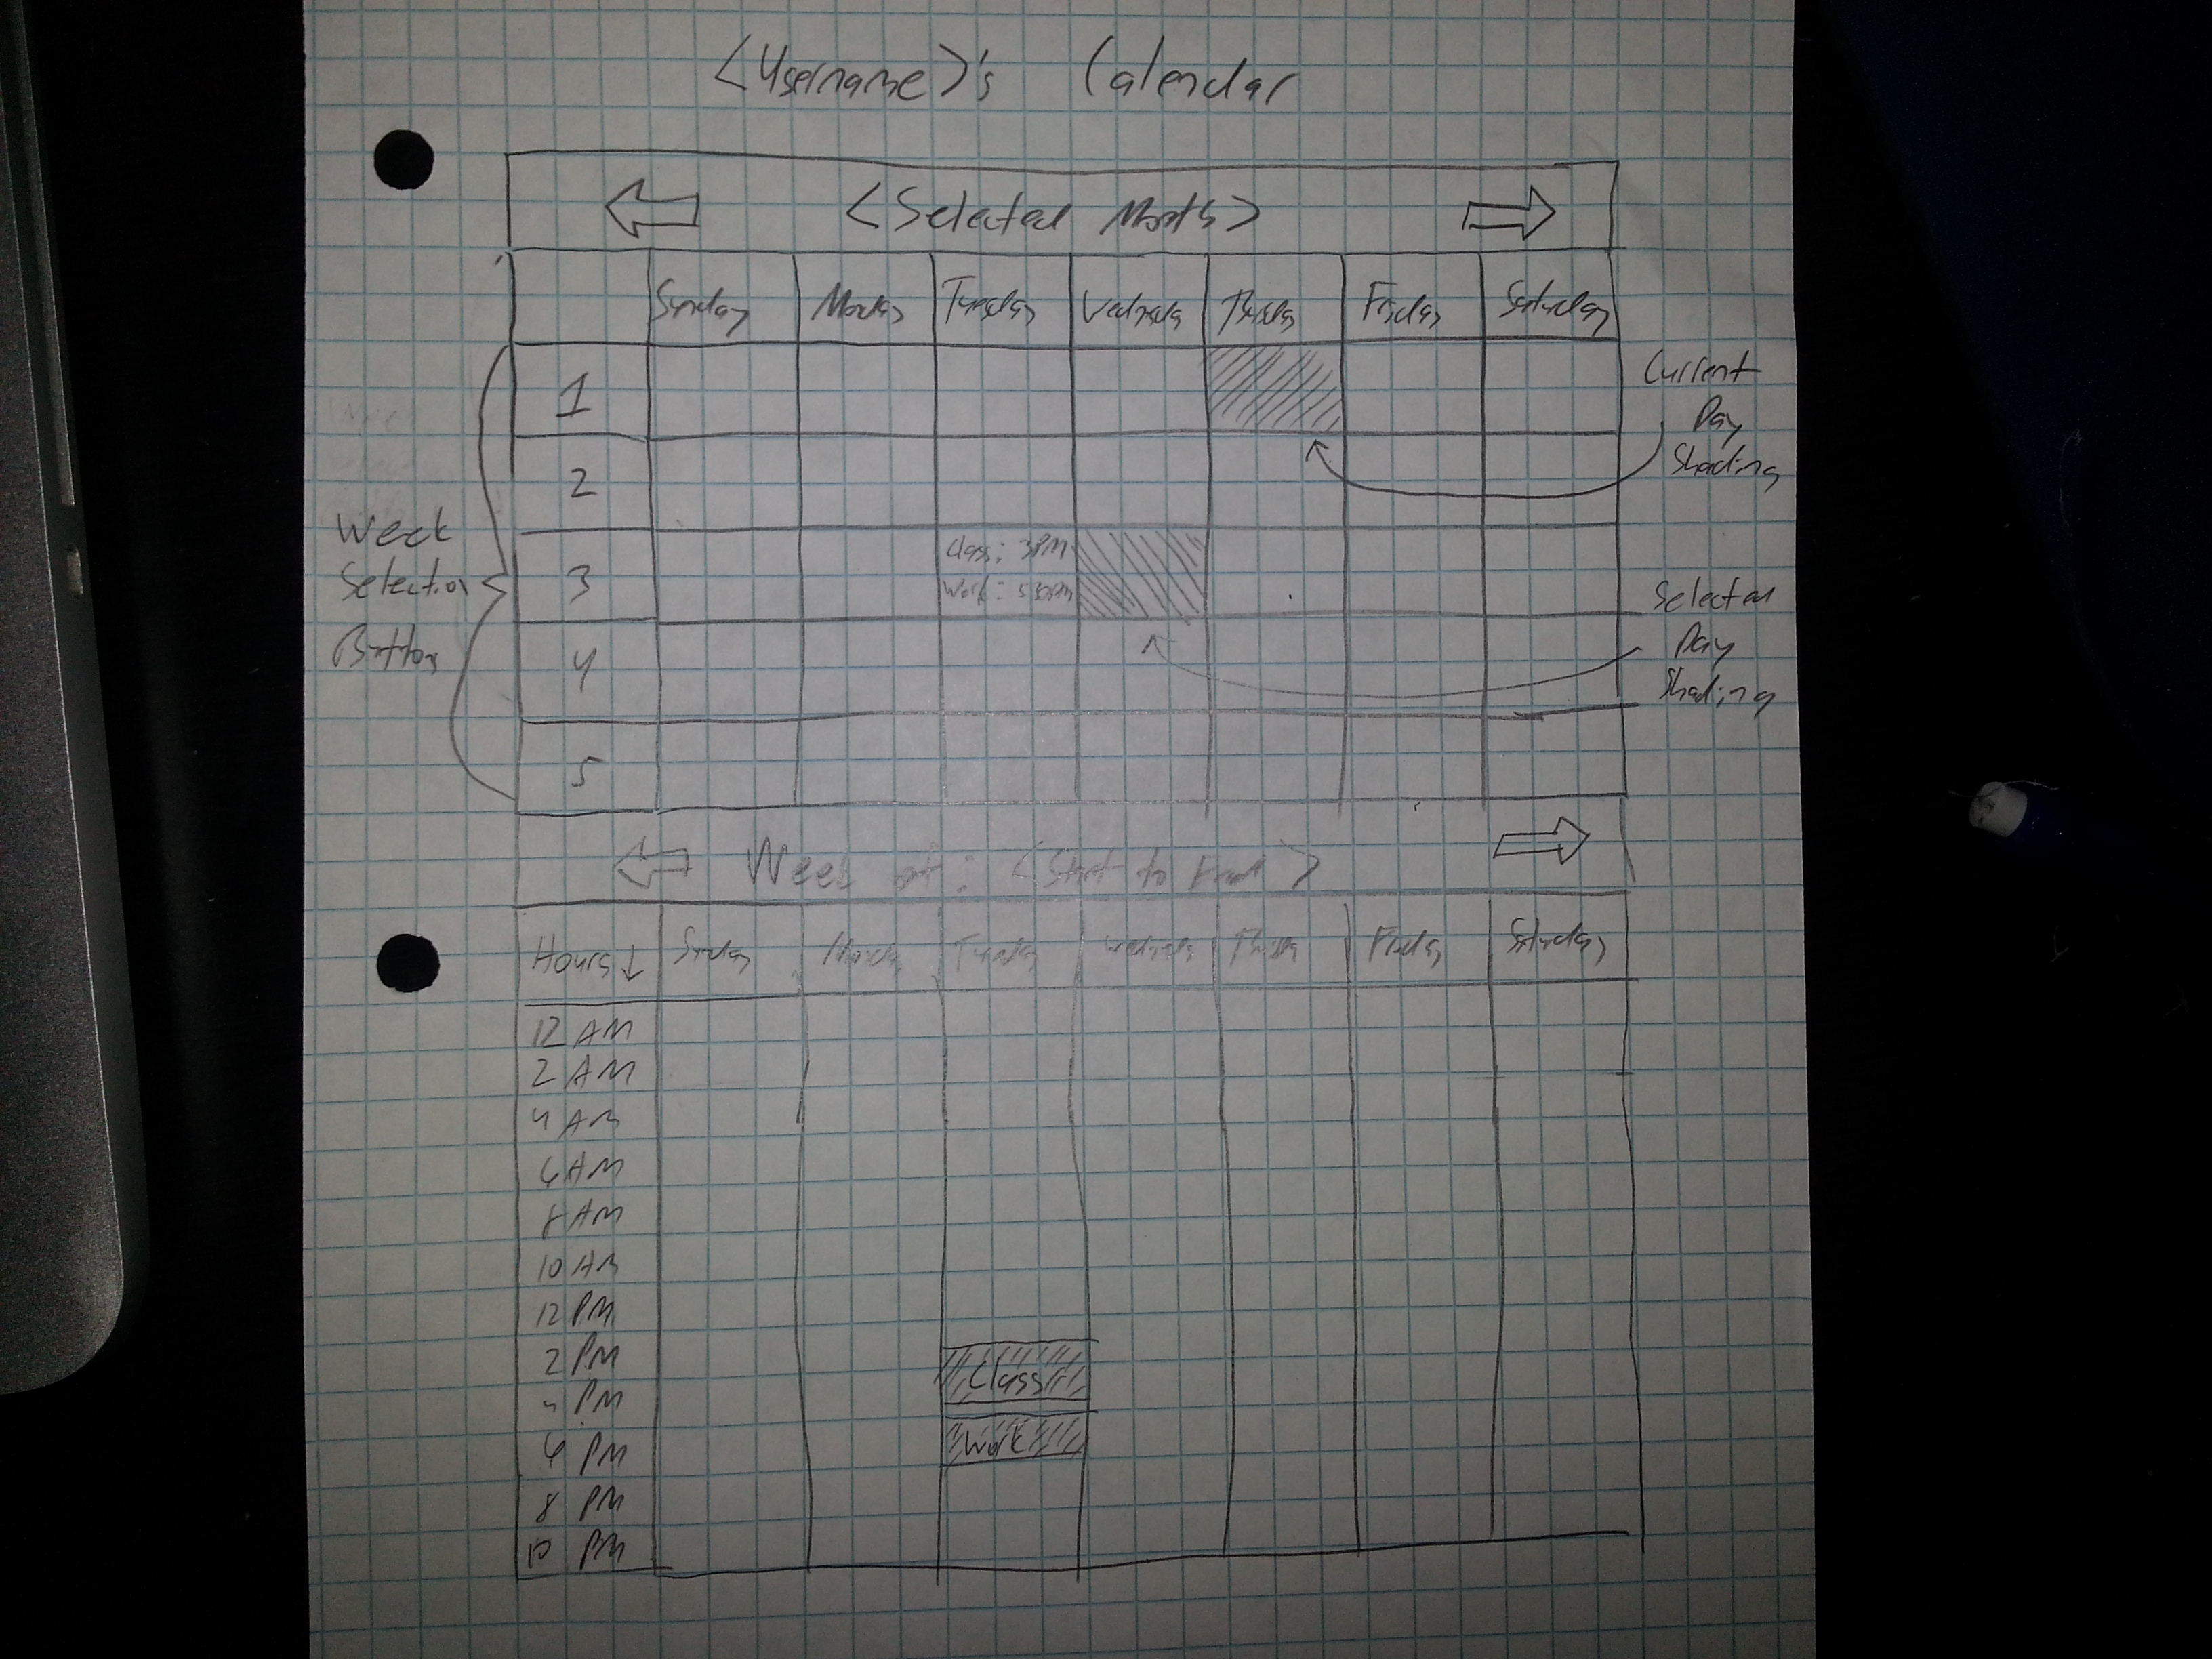 <Username>'s Calendar
<Selected Month>
Sunday Monday Tuesday Wednesday Thursday Friday Saturday
1
2
3 Class: 3PM
Work: 530PM
4
5
Current
Day
Shading
Week
Selection
Button
Selected
Day
Shading
Week of: <Start to End>
Hours ↓ Sunday Monday Tuesday Wednesday Thursday Friday Saturday
12 AM
2 AM
4 AM
6 AM
8 AM
10 AM
12 PM
2 PM
Class
4 PM
6 PM
Work
8 PM
10 PM